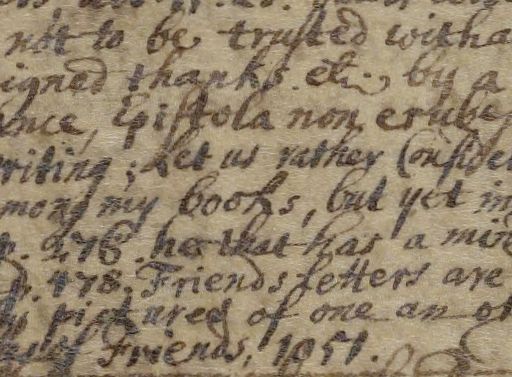 not to be trusted witha
igned thanks. etc. by a
ance, Epistola non erube
riting; Let us rather Consid
mong my books, but yet in
p. 276. he that has a mi
p. 178. Friends letters are
pictures of one an ot
Friends, 1051.